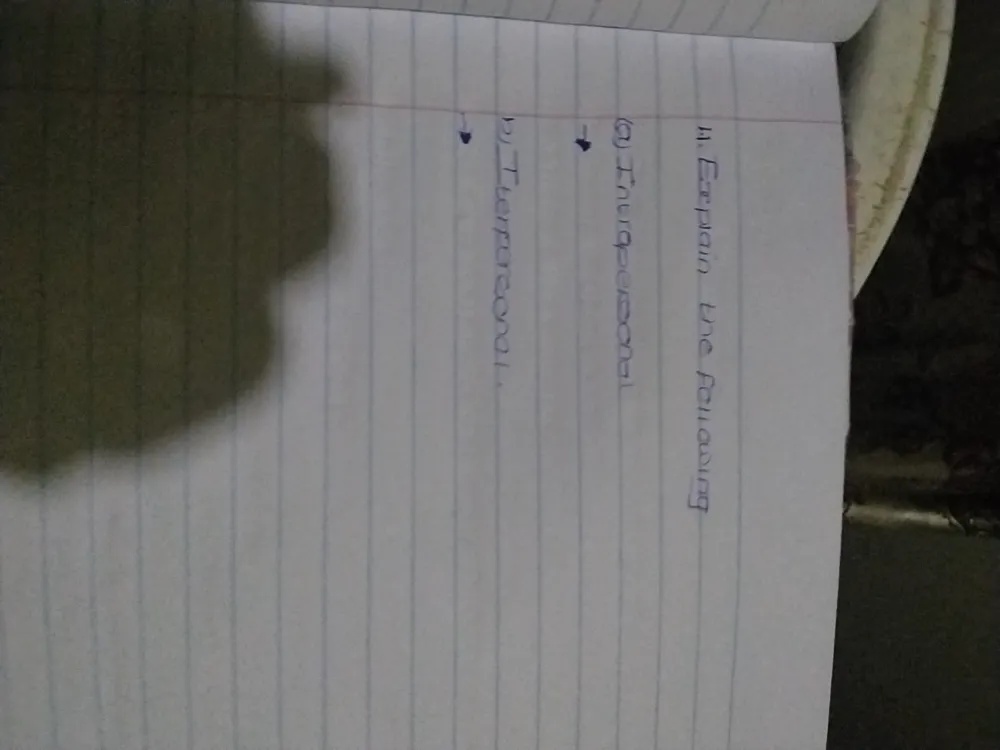 4. Explain the following
(a) Intrapersonal
→
b) Iterpersonal.
→